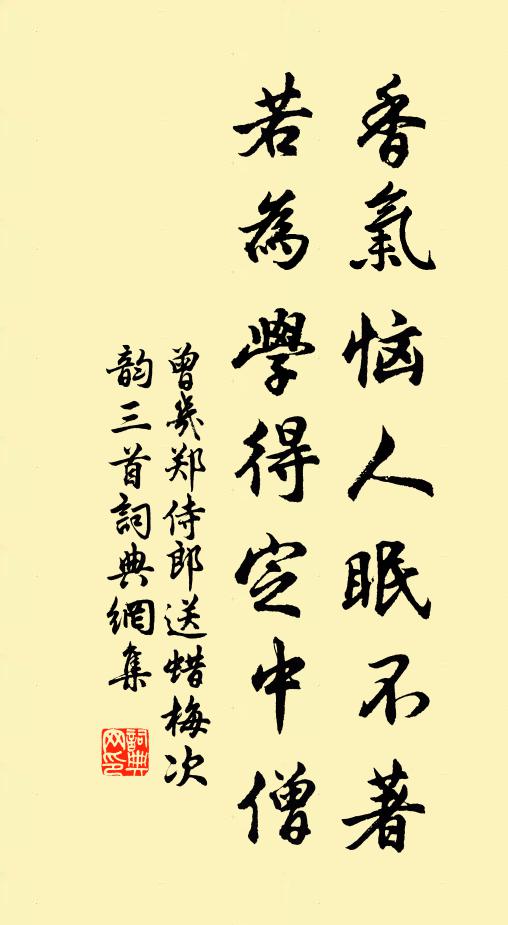 香氣惱人眠不著
若為學得定中僧
曾幾郑侍郎送蜡梅次
韵三首詞典網集
詞典网印